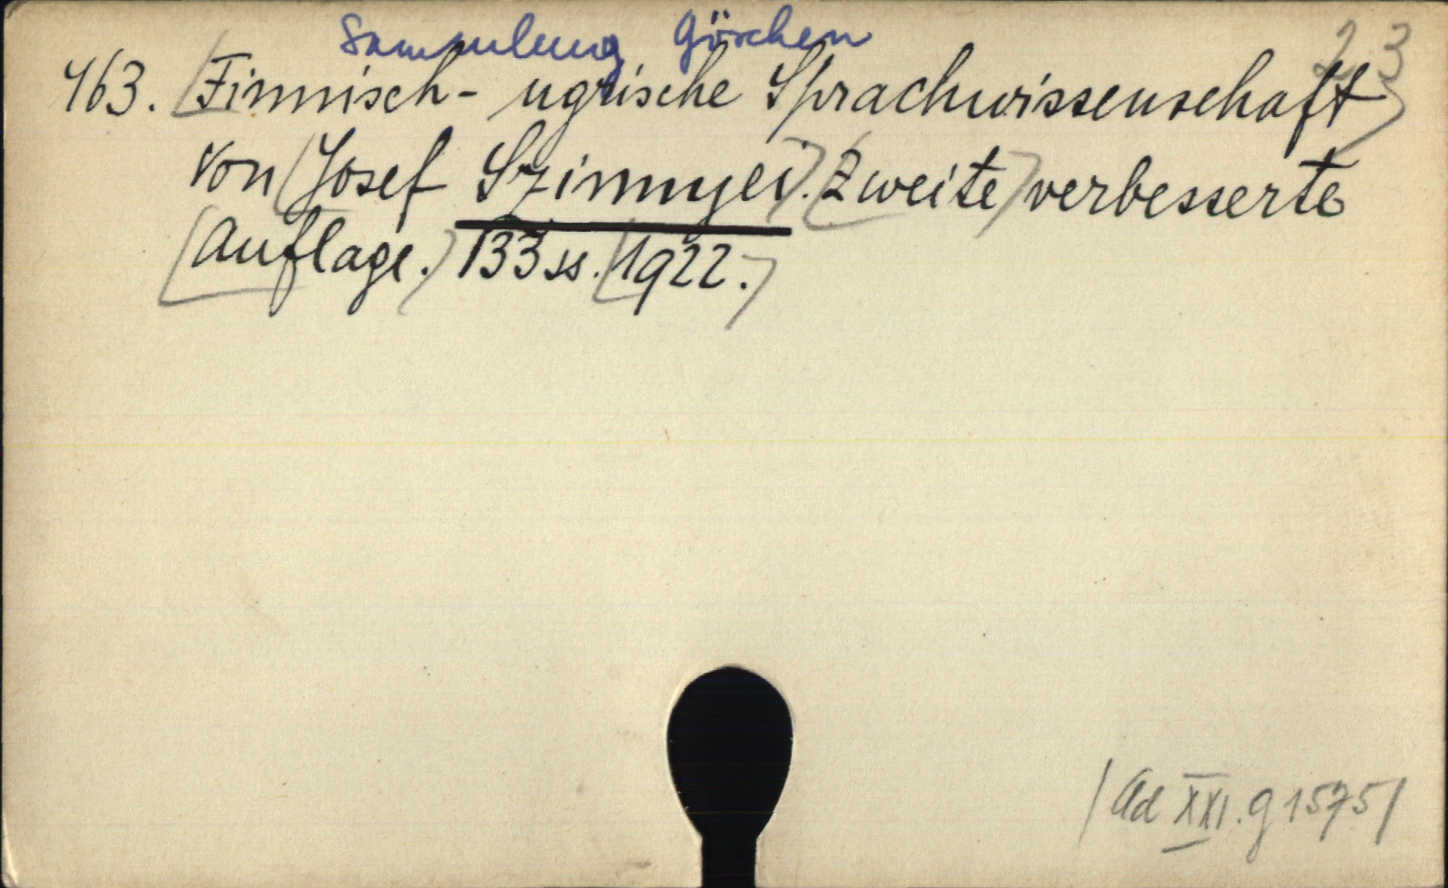 Sammlung Göschen
23
463. [Finnisch-ugrische Sprachwissenschaft]
von [Josef Szinnyei]. [Zweite] verbesserte
[Auflage.] 133 ss. [1922.]
/Ad XXI. g 1575/